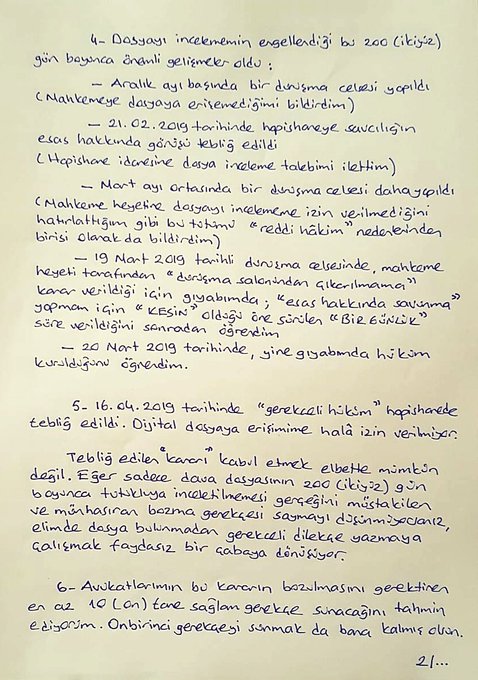 4- Dosyayı incelememin engellendiği bu 200 (ikiyüz)
gün boyunca önemli gelişmeler oldu:
- Aralık ayı başında bir duruşma celsesi yapıldı
(Mahkemeye dosyaya erişemediğimi bildirdim)
- 21.02.2019 tarihinde hapishaneye savcılığın
esas hakkında görüşü tebliğ edildi
(Hapishane idaresine dosya inceleme talebimi ilettim)
- Mart ayı ortasında bir duruşma celsesi daha yapıldı
(Mahkeme heyetine dosyayı incelememe izin verilmediğini
hatırlattığım gibi bu tutumu "reddi hâkim" nedenlerinden
birisi olarak da bildirdim)
- 19 Mart 2019 tarihli duruşma celsesinde, mahkeme
heyeti tarafından "duruşma salonundan çıkarılmama"
karar verildiği için gıyabımda; "esas hakkında savunma"
yapmam için "KESİN" olduğu öne sürülen "BİR GÜNLÜK"
süre verildiğini sonradan öğrendim
- 20 Mart 2019 tarihinde, yine gıyabımda hüküm
kurulduğunu öğrendim.
5- 16.04.2019 tarihinde "gerekçeli hüküm" hapishanede
tebliğ edildi. Dijital dosyaya erişimime halâ izin verilmiyor.
Tebliğ edilen "kararı" kabul etmek elbette mümkün
değil. Eğer sadece dava dosyasının 200 (ikiyüz) gün
boyunca tutukluya inceletilmemesi gerçeğini müstakilen
ve münhasıran bozma gerekçesi saymayı düşünmüyorsanız,
elimde dosya bulunmadan gerekçeli dilekçe yazmaya
çalışmak faydasız bir çabaya dönüşüyor.
6- Avukatlarımın bu kararın bozulmasını gerektiren
en az 10 (on) tane sağlam gerekçe sunacağını tahmin
ediyorum. Onbirinci gerekçeyi sunmak da bana kalmış olsun.
2/...